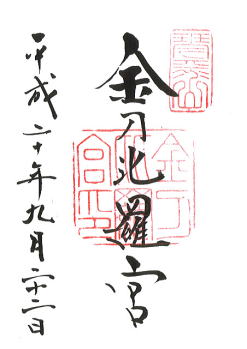 金刀比羅宮
平成二十年九月二十二日
金刀比羅宮印